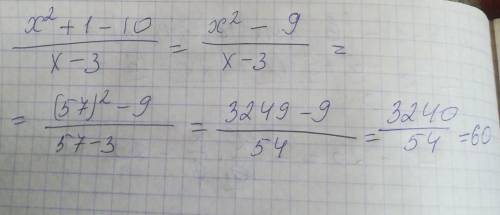 (x² + 1 - 10)/(x - 3) = (x² - 9)/(x - 3) =
= ((57)² - 9)/(57 - 3) = (3249 - 9)/54 = 3240/54 = 60